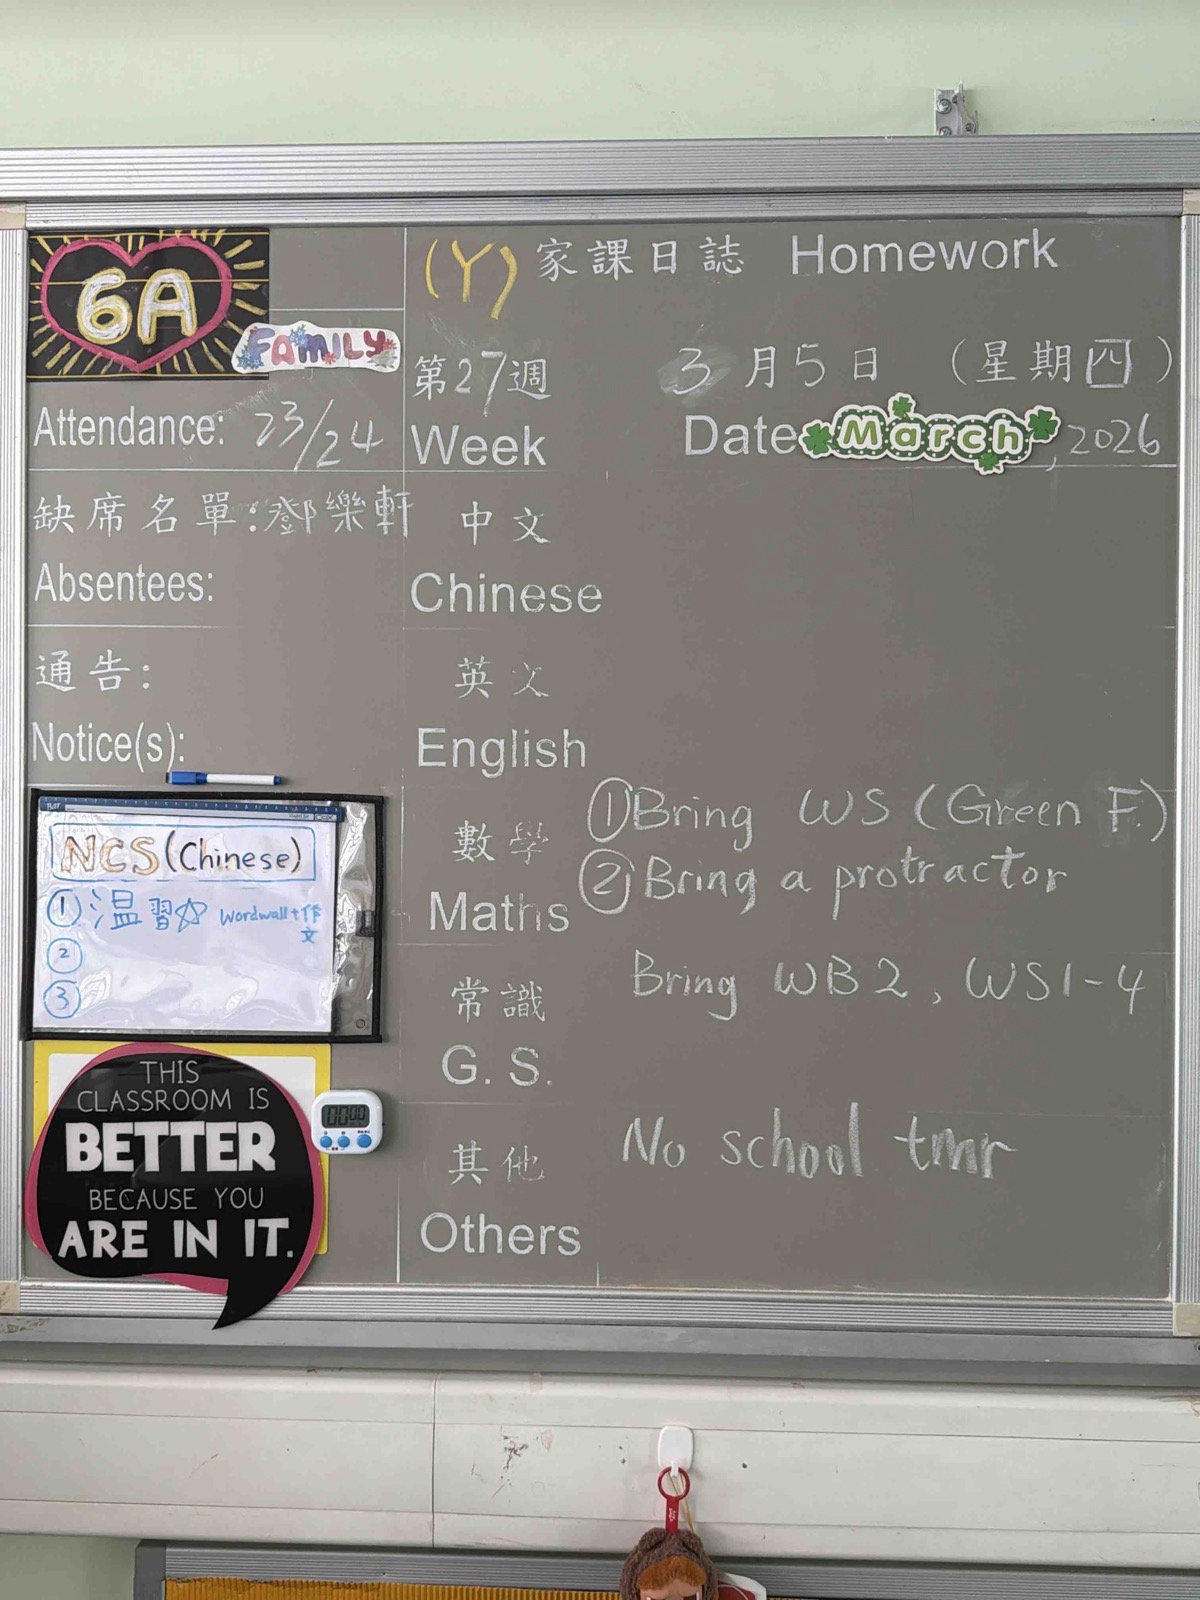 6A
FAMILY
Attendance: 23/24
缺席名單:鄧樂軒
Absentees:
通告:
Notice(s):
NCS (Chinese)
① 温習☆ Wordwall+作文
②
③
THIS
CLASSROOM IS
BETTER
BECAUSE YOU
ARE IN IT.
(Y) 家課日誌 Homework
第27週 3月5日 (星期四)
Week Date March, 2026
中文
Chinese
英文
English
數學
Maths
① Bring WS (Green F.)
② Bring a protractor
常識
G. S.
Bring WB2, WS1-4
其他
Others
No school tmr